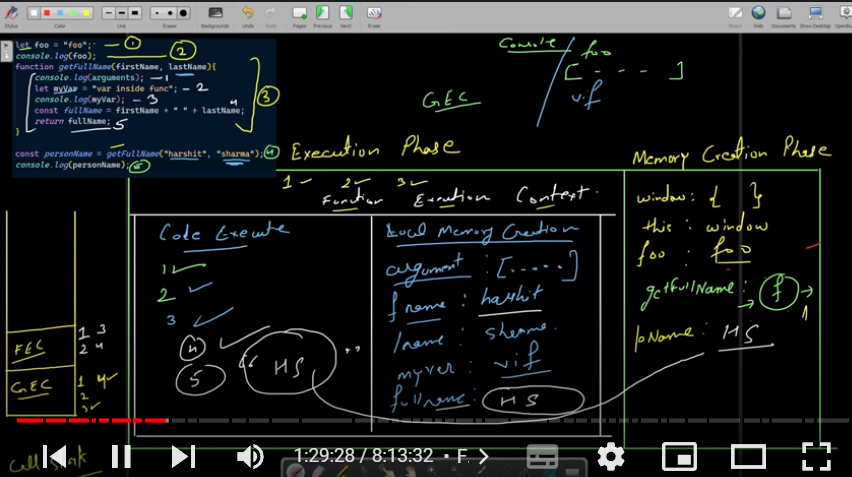 Stylus
Color
Line
Eraser
Backgrounds
Undo
Redo
Pages
Previous
Next
Erase
Board
Web
Documents
Desktop
OpenBoard
let foo = "foo"; — 1
console.log(foo); 2
function getfullName(firstName, lastName){
console.log(arguments); — 1
let myVar = "var inside func"; — 2
console.log(myVar); — 3
const fullName = firstName + " " + lastName; 4
return fullName; 5
} 3
const personName = getFullName("harshit", "sharma"); 4
console.log(personName); 5
Console
foo
[ - - - ]
vif
GEC
Execution Phase
Memory Creation Phase
1 ✓ 2 ✓ 3 ✓
Function Execution Context.
Code Execute
1 ✓
2 ✓
3 ✓
4 ✓
5 " HS "
Local Memory Creation
argument : [.....]
fname : harshit
lname : sharma
myver : vif
fullname : HS
window : { }
this : window
foo : foo
getFullName : f → 1
pName : HS
FEC 1 3
2 4
GEC 1 4 ✓
2
3 ✓
Call Stack
1:29:28 / 8:13:32 • F. >